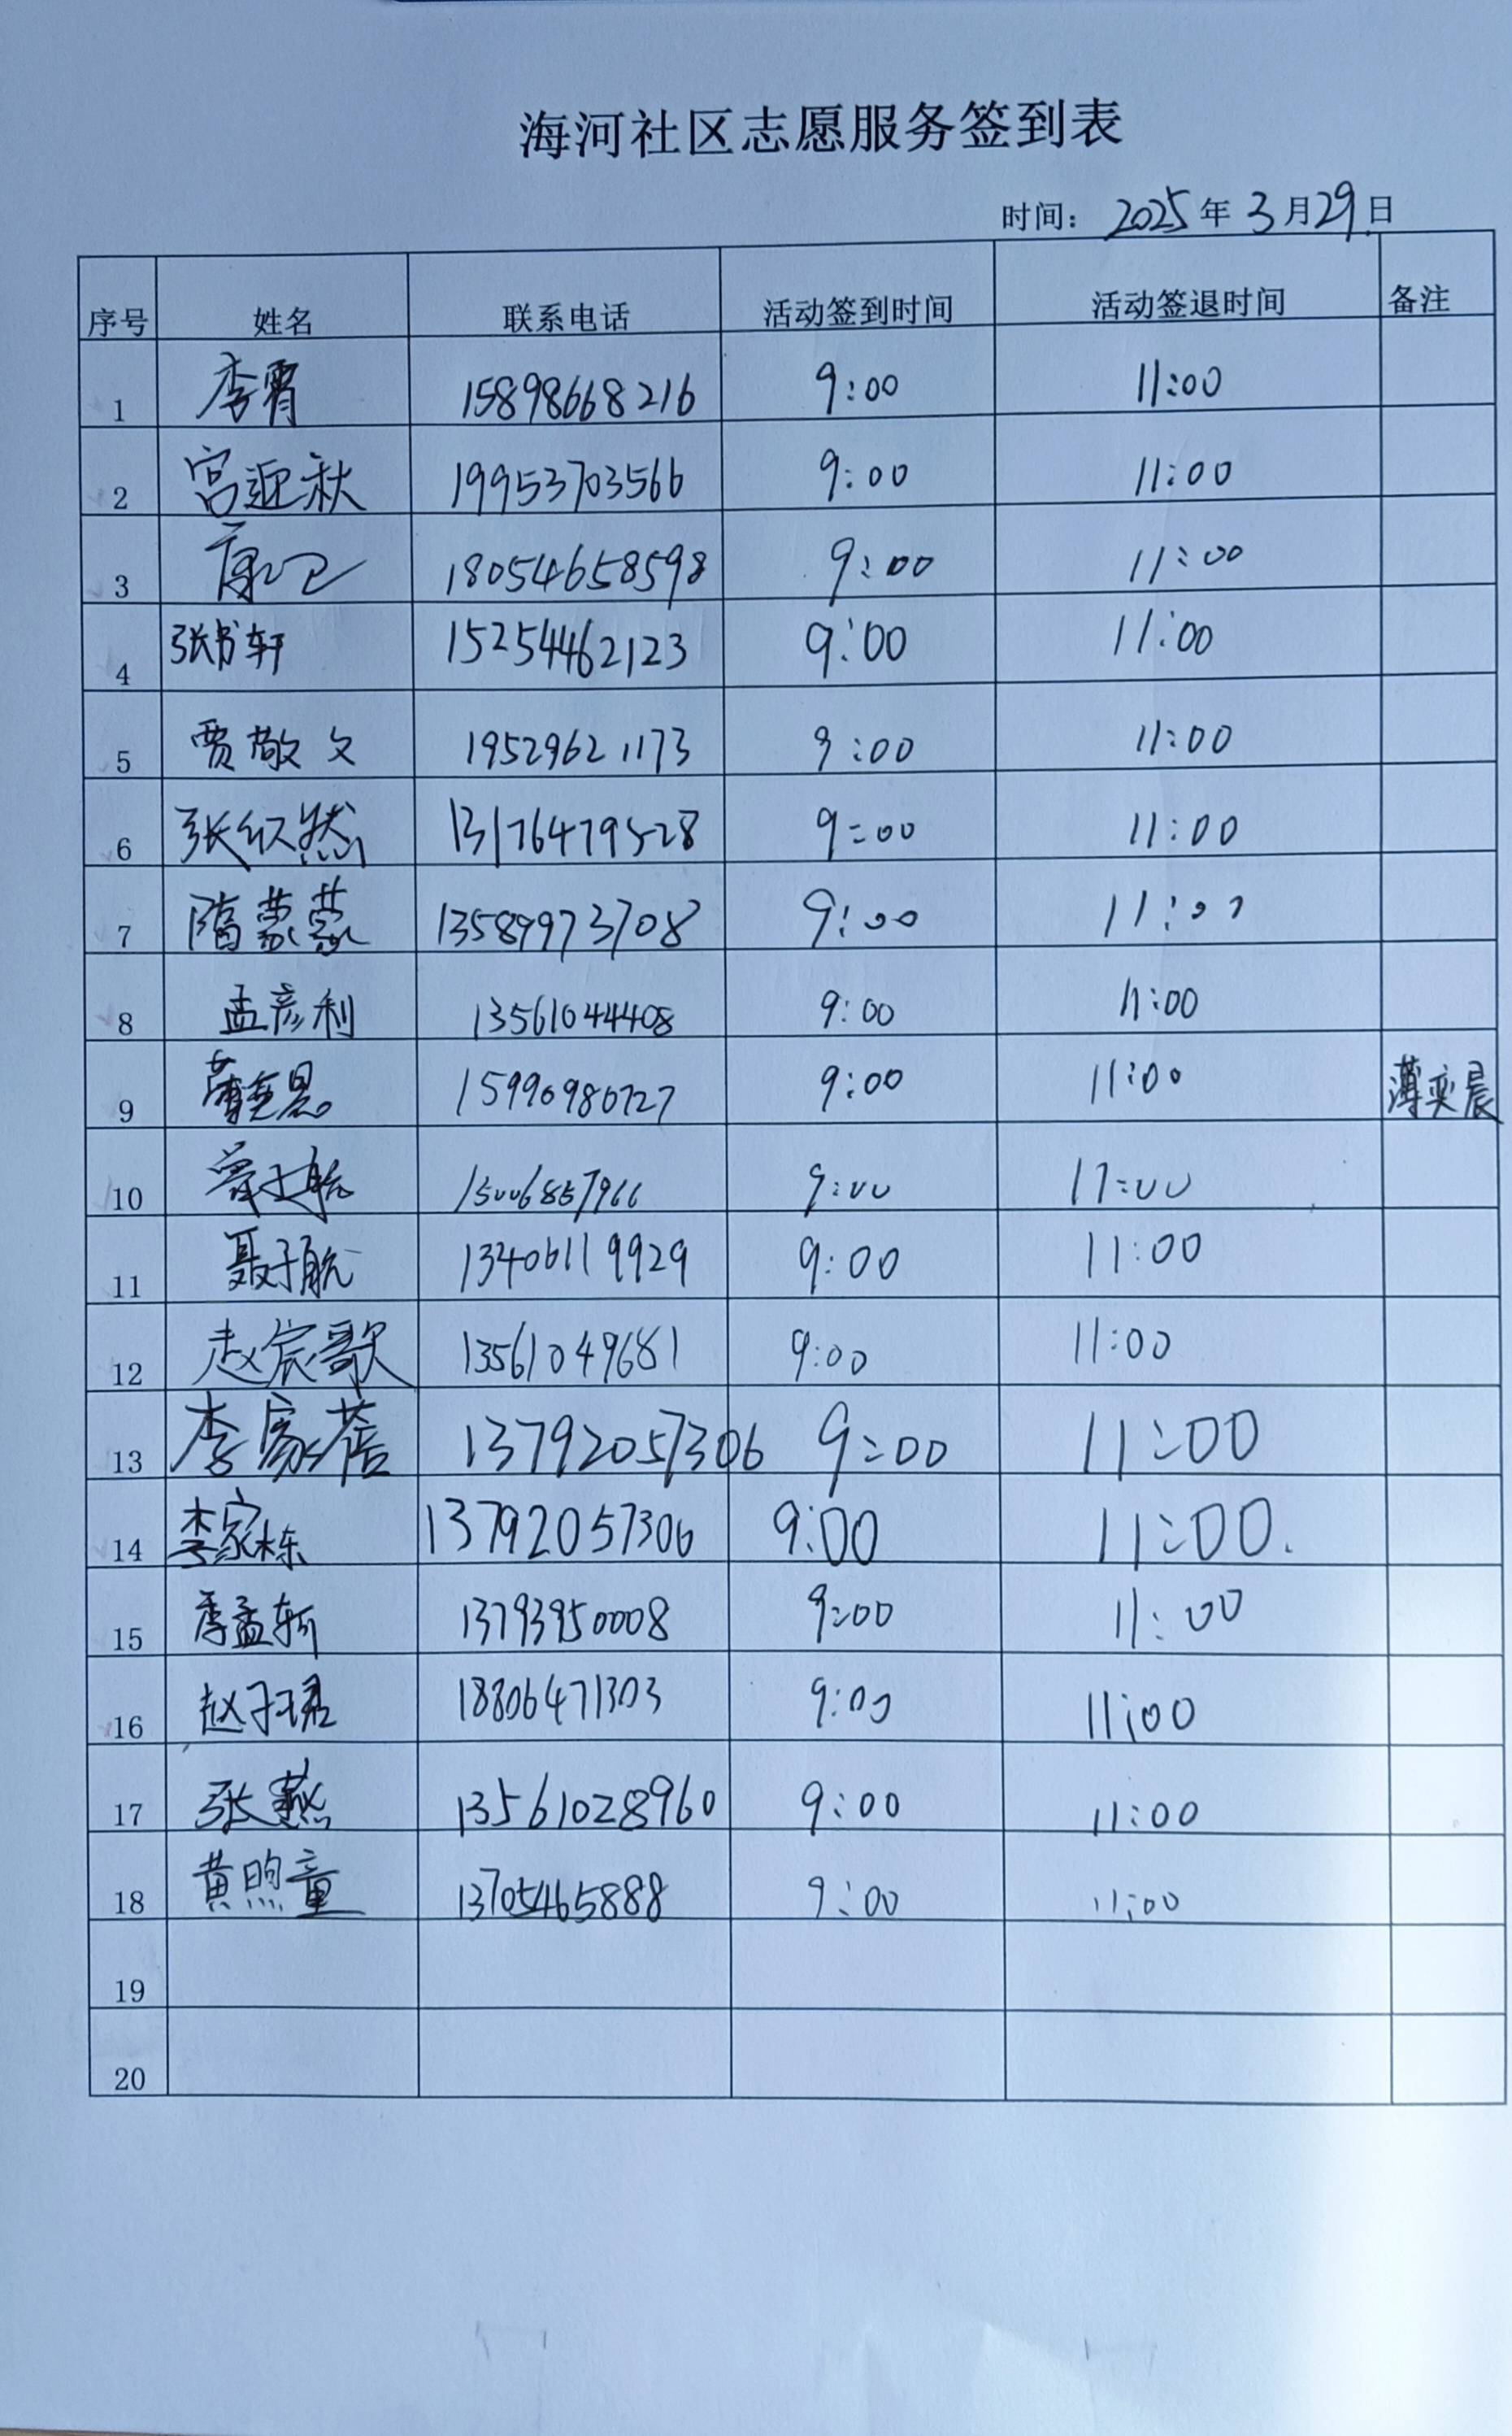 海河社区志愿服务签到表
时间： 2025年3月29日
序号 姓名 联系电话 活动签到时间 活动签退时间 备注
1 李霄 15898668216 9:00 11:00
2 宫迎秋 19953703566 9:00 11:00
3 18054658598 9:00 11:00
4 张书轩 15254462123 9:00 11:00
5 贾敬文 19529621173 9:00 11:00
6 张红然 13176479528 9:00 11:00
7 隋蒙蒙 13589973708 9:00 11:00
8 孟彦利 13561044408 9:00 11:00
9 15990980727 9:00 11:00 薄奕晨
10 15006857966 9:00 11:00
11 聂子航 13406119929 9:00 11:00
12 赵宸歌 13561049681 9:00 11:00
13 李家蓓 13792057306 9:00 11:00
14 李家栋 13792057306 9:00 11:00.
15 季孟斩 13793950008 9:00 11:00
16 赵子珺 18806471303 9:00 11:00
17 张燕 13561028960 9:00 11:00
18 黄煦童 13705465888 9:00 11:00
19
20